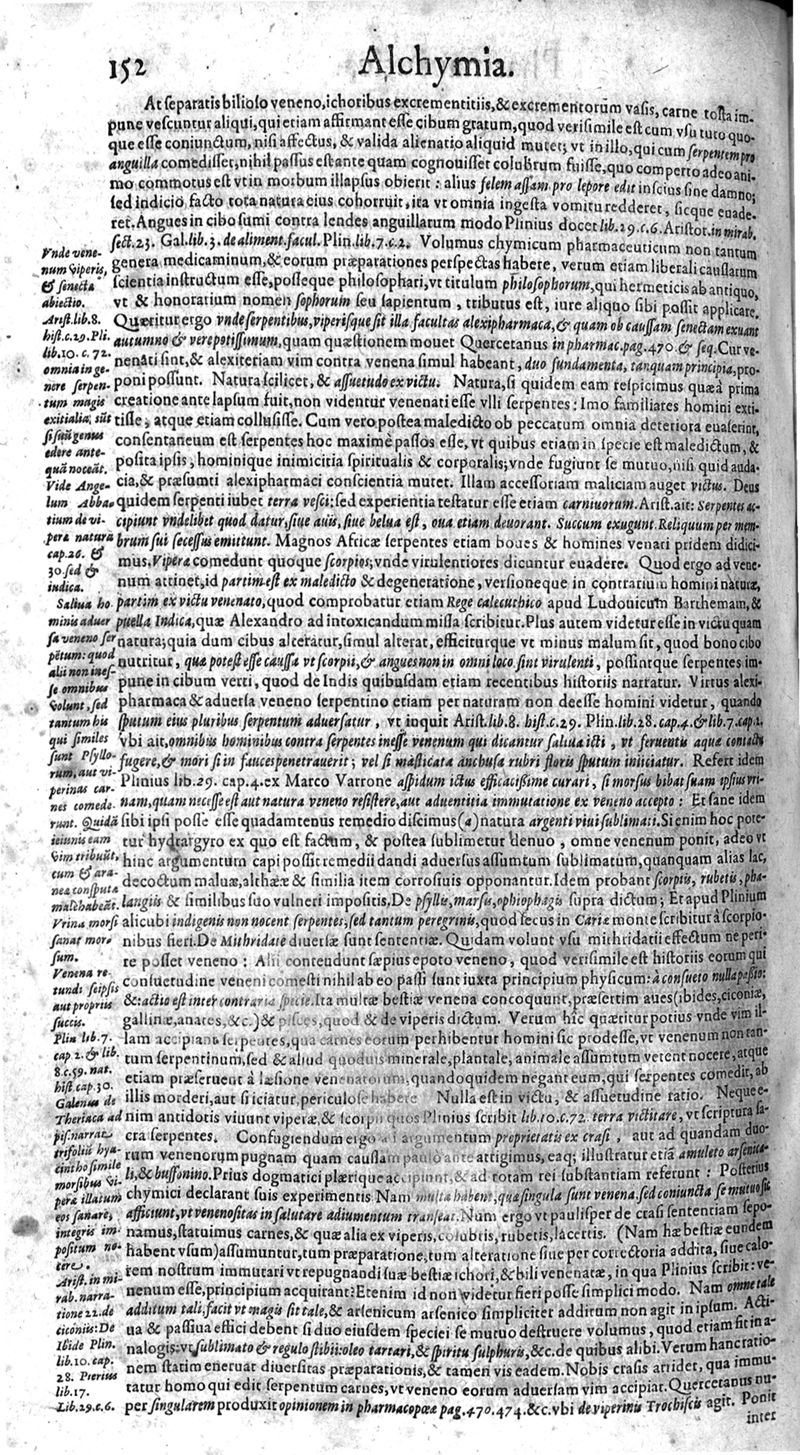 152
Alchymia.
At separatis bilioso veneno, ichoribus excrementitiis, & excrementorum vasis, carne tosta im-
pune vescuntur aliqui, qui etiam affirmant esse cibum gratum, quod verisimile est cum vsu tuto quo-
que esse coniunctum, nisi affectus, & valida alienatio aliquid mutet; vt in illo, qui cum serpentem pro
anguilla comedisset, nihil passus est ante quam cognouisset colubrum fuisse, quo comperto adeo ani-
mo commotus est vt in morbum illapsus obierit: alius felem assam pro lepore edit inscius sine damno;
sed indicio facto tota natura eius cohorruit, ita vt omnia ingesta vomitu redderet, sicque euade-
ret. Angues in cibo sumi contra lendes anguillarum modo Plinius docet lib. 29. c. 6. Aristot. in mirab.
sect. 23. Gal. lib. 3. de aliment. facul. Plin. lib. 7. c. 2. Volumus chymicum pharmaceuticum non tantum
genera medicaminum, & eorum præparationes perspectas habere, verum etiam liberali caussarum
scientia instructum esse, posseque philosophari, vt titulum philosophorum, qui hermeticis ab antiquo,
vt & honoratium nomen sophorum seu sapientum, tributus est, iure aliquo sibi possit applicare.
Quæritur ergo vnde serpentibus, viperisque sit illa facultas alexipharmaca, & quam ob caussam senectam exuant
autumno & vere potissimum, quam quæstionem mouet Quercetanus in pharmac. pag. 470. & seq. Cur ve-
nenati sint, & alexiteriam vim contra venena simul habeant, duo fundamenta, tanquam principia, pro-
poni possunt. Natura scilicet, & assuetudo ex victu. Natura, si quidem eam respicimus quæ à prima
creatione ante lapsum fuit, non videntur venenati esse vlli serpentes: Imo familiares homini exti-
tisse, atque etiam collusisse. Cum vero postea maledicto ob peccatum omnia deteriora euaserint,
consentaneum est serpentes hoc maxime passos esse, vt quibus etiam in specie est maledictum, &
posita ipsis, hominique inimicitia spiritualis & corporalis; vnde fugiunt se mutuo, nisi quid auda-
cia, & præsumti alexipharmaci conscientia mutet. Illam accessoriam maliciam auget victus. Deus
quidem serpenti iubet terra vesci; sed experientia testatur esse etiam carniuorum. Arist. ait: Serpentes ac-
cipiunt vndelibet quod datur, siue auis, siue belua est, oua etiam deuorant. Succum exugunt. Reliquum per mem-
brum sui secessus emittunt. Magnos Africæ serpentes etiam boues & homines venari pridem didici-
mus. Vipera comedunt quoque scorpios; vnde virulentiores dicuntur euadere. Quod ergo ad vene-
num attinet, id partim est ex maledicto & degeneratione, versioneque in contrarium homini naturæ,
partim ex victu venenato, quod comprobatur etiam Rege calecuthico apud Ludonicum Barthemam, &
puella Indica, quæ Alexandro ad intoxicandum missa scribitur. Plus autem videtur esse in victu quam
natura; quia dum cibus alteratur, simul alterat, efficiturque vt minus malum sit, quod bono cibo
nutritur, quæ potest esse caussa vt scorpii, & angues non in omni loco sint virulenti, possintque serpentes im-
pune in cibum verti, quod de Indis quibusdam etiam recentibus historiis narratur. Virtus alexi-
pharmaca & aduersa veneno serpentino etiam per naturam non deesse homini videtur, quando
sputum eius pluribus serpentum aduersatur, vt inquit Arist. lib. 8. hist. c. 29. Plin. lib. 28. cap. 4. & lib. 7. cap. 2.
vbi ait, omnibus hominibus contra serpentes inesse venenum qui dicantur saliua icti, vt feruentis aquæ contactu
fugere, & mori si in fauces penetrauerit; vel si masticata anchusa rubri floris sputum iniiciatur. Refert idem
Plinius lib. 29. cap. 4. ex Marco Varrone aspidum ictus efficacissime curari, si morsus bibat suam ipsius vri-
nam, quam necesse est aut natura veneno resistere, aut aduentitia immutatione ex veneno accepto: Et sane idem
sibi ipsi posse esse quadamtenus remedio discimus (a) natura argenti viui sublimati. Si enim hoc pote-
tur hydrargyro ex quo est factum, & postea sublimetur denuo, omne venenum ponit, adeo vt
hinc argumentum capi possit remedii dandi aduersus assumtum sublimatum, quanquam alias lac,
decoctum maluæ, althææ & similia item corrosiuis opponantur. Idem probant scorpiis, rubetis, pha-
langiis & similibus suo vulneri impositis. De psyllis, marsis, ophiophagis supra dictum; Et apud Plinium
alicubi indigenis non nocent serpentes, sed tantum peregrinis, quod secus in Cariæ monte scribitur à scorpio-
nibus fieri. De Mithridate diuersæ sunt sententiæ. Quidam volunt vsu mithridatii effectum ne peri-
re posset veneno: Alii contendunt sæpius epoto veneno, quod verisimile est historiis eorum qui
consuetudine veneni comesti nihil ab eo passi sunt iuxta principium physicum: à consueto nulla passio:
&: actio est inter contraria specie. Ita multæ bestiæ venena concoquunt, præsertim aues (ibides, ciconiæ,
gallinæ, anates, &c.) & pisces, quod & de viperis dictum. Verum hîc quæritur potius vnde vim il-
lam accipiant serpentes, qua carnes eorum perhibentur homini sic prodesse, vt venenum non tan-
tum serpentinum, sed & aliud quoduis minerale, plantale, animale assumtum vetent nocere, atque
etiam præseruent à læsione venenatorum, quandoquidem negant eum, qui serpentes comedit, ab
illis morderi, aut si iciatur, periculose habere Nulla est in victu, & assuetudine ratio. Neque e-
nim antidotis viuunt viperæ, & scorpii quos Plinius scribit lib. 10. c. 72. terra victitare, vt scriptura sa-
cra serpentes. Confugiendum ergo ad argumentum proprietatis ex crasi, aut ad quandam duo-
rum venenorum pugnam quam caussam paulo ante attigimus, eaq; illustratur etiā amuleto arsenica-
li, & buffonino. Prius dogmatici plærique accipiunt, & ad rotam rei substantiam referunt: Posterius
chymici declarant suis experimentis Nam multa habent, quæ singula sunt venena, sed coniuncta se mutuo sic
afficiunt, vt venenositas in salutare adiumentum transeat. Num ergo vt paulisper de crasi sententiam sepo-
namus, statuimus carnes, & quæ alia ex viperis, colubris, rubetis, lacertis. (Nam hæ bestiæ eundem
habent vsum) assumuntur, tum præparatione, tum alteratione siue per correctoria addita, siue calo-
rem nostrum immutari vt repugnandi suæ bestiæ ichori, & bili venenatæ, in qua Plinius scribit: ve-
nenum esse, principium acquirant: Etenim id non videtur fieri posse simplici modo. Nam omne tale
additum tali, facit vt magis sit tale, & arsenicum arsenico simpliciter additum non agit in ipsum. Acti-
ua & passiua effici debent si duo eiusdem speciei se mutuo destruere volumus, quod etiam fit in a-
nalogis: vt sublimato & regulo stibii: oleo tartari, & spiritu sulphuris, &c. de quibus alibi. Verum hanc ratio-
nem statim eneruat diuersitas præparationis, & tamen vis eadem. Nobis crasis arridet, qua immu-
tatur homo qui edit serpentum carnes, vt veneno eorum aduersam vim accipiat. Quercetanus nu-
per singularem produxit opinionem in pharmacopœa pag. 470. 474. &c. vbi de viperinis Trochiscis agit. Ponit
inter
Vnde vene-
num viperis,
& senecta
abiectio.
Arist. lib. 8.
hist. c. 29. Pli.
lib. 10. c. 72.
omnia in ge-
nere serpen-
tum magis
exitialia, sūt
si suū genus
edere ante-
quā noceāt.
Vide Ange-
lum Abba-
tium de vi-
pera natura
cap. 26. &
30. sed &
indica.
Saliua ho-
minis aduer
sa veneno ser
pētum: quod
alii non ines-
se omnibus
volunt, sed
tantum his
qui similes
sunt Psyllo-
rum, aut vi-
perinas car-
nes comede-
runt. Quidā
ieiunis eam
vim tribuūt,
cum & ara-
nea consputa
male habeāt.
Vrina morsi
sanat mor-
sum.
Venena re-
tundi seipsis
aut propriis
succis.
Plin lib. 7.
cap 2. & lib.
8. c. 59. nat.
hist cap. 30.
Galenus de
Theriaca ad
pis. narrat
trifolii hya-
cintho simile
morsibus vi-
pera illatum
eos sanare,
integris im-
positum no-
cere.
Arist. in mi-
rab. narra-
tione 22. de
ciconiis: De
Ibide Plin.
lib. 10. cap.
28. Pierius
lib. 17.
Lib. 29. c. 6.